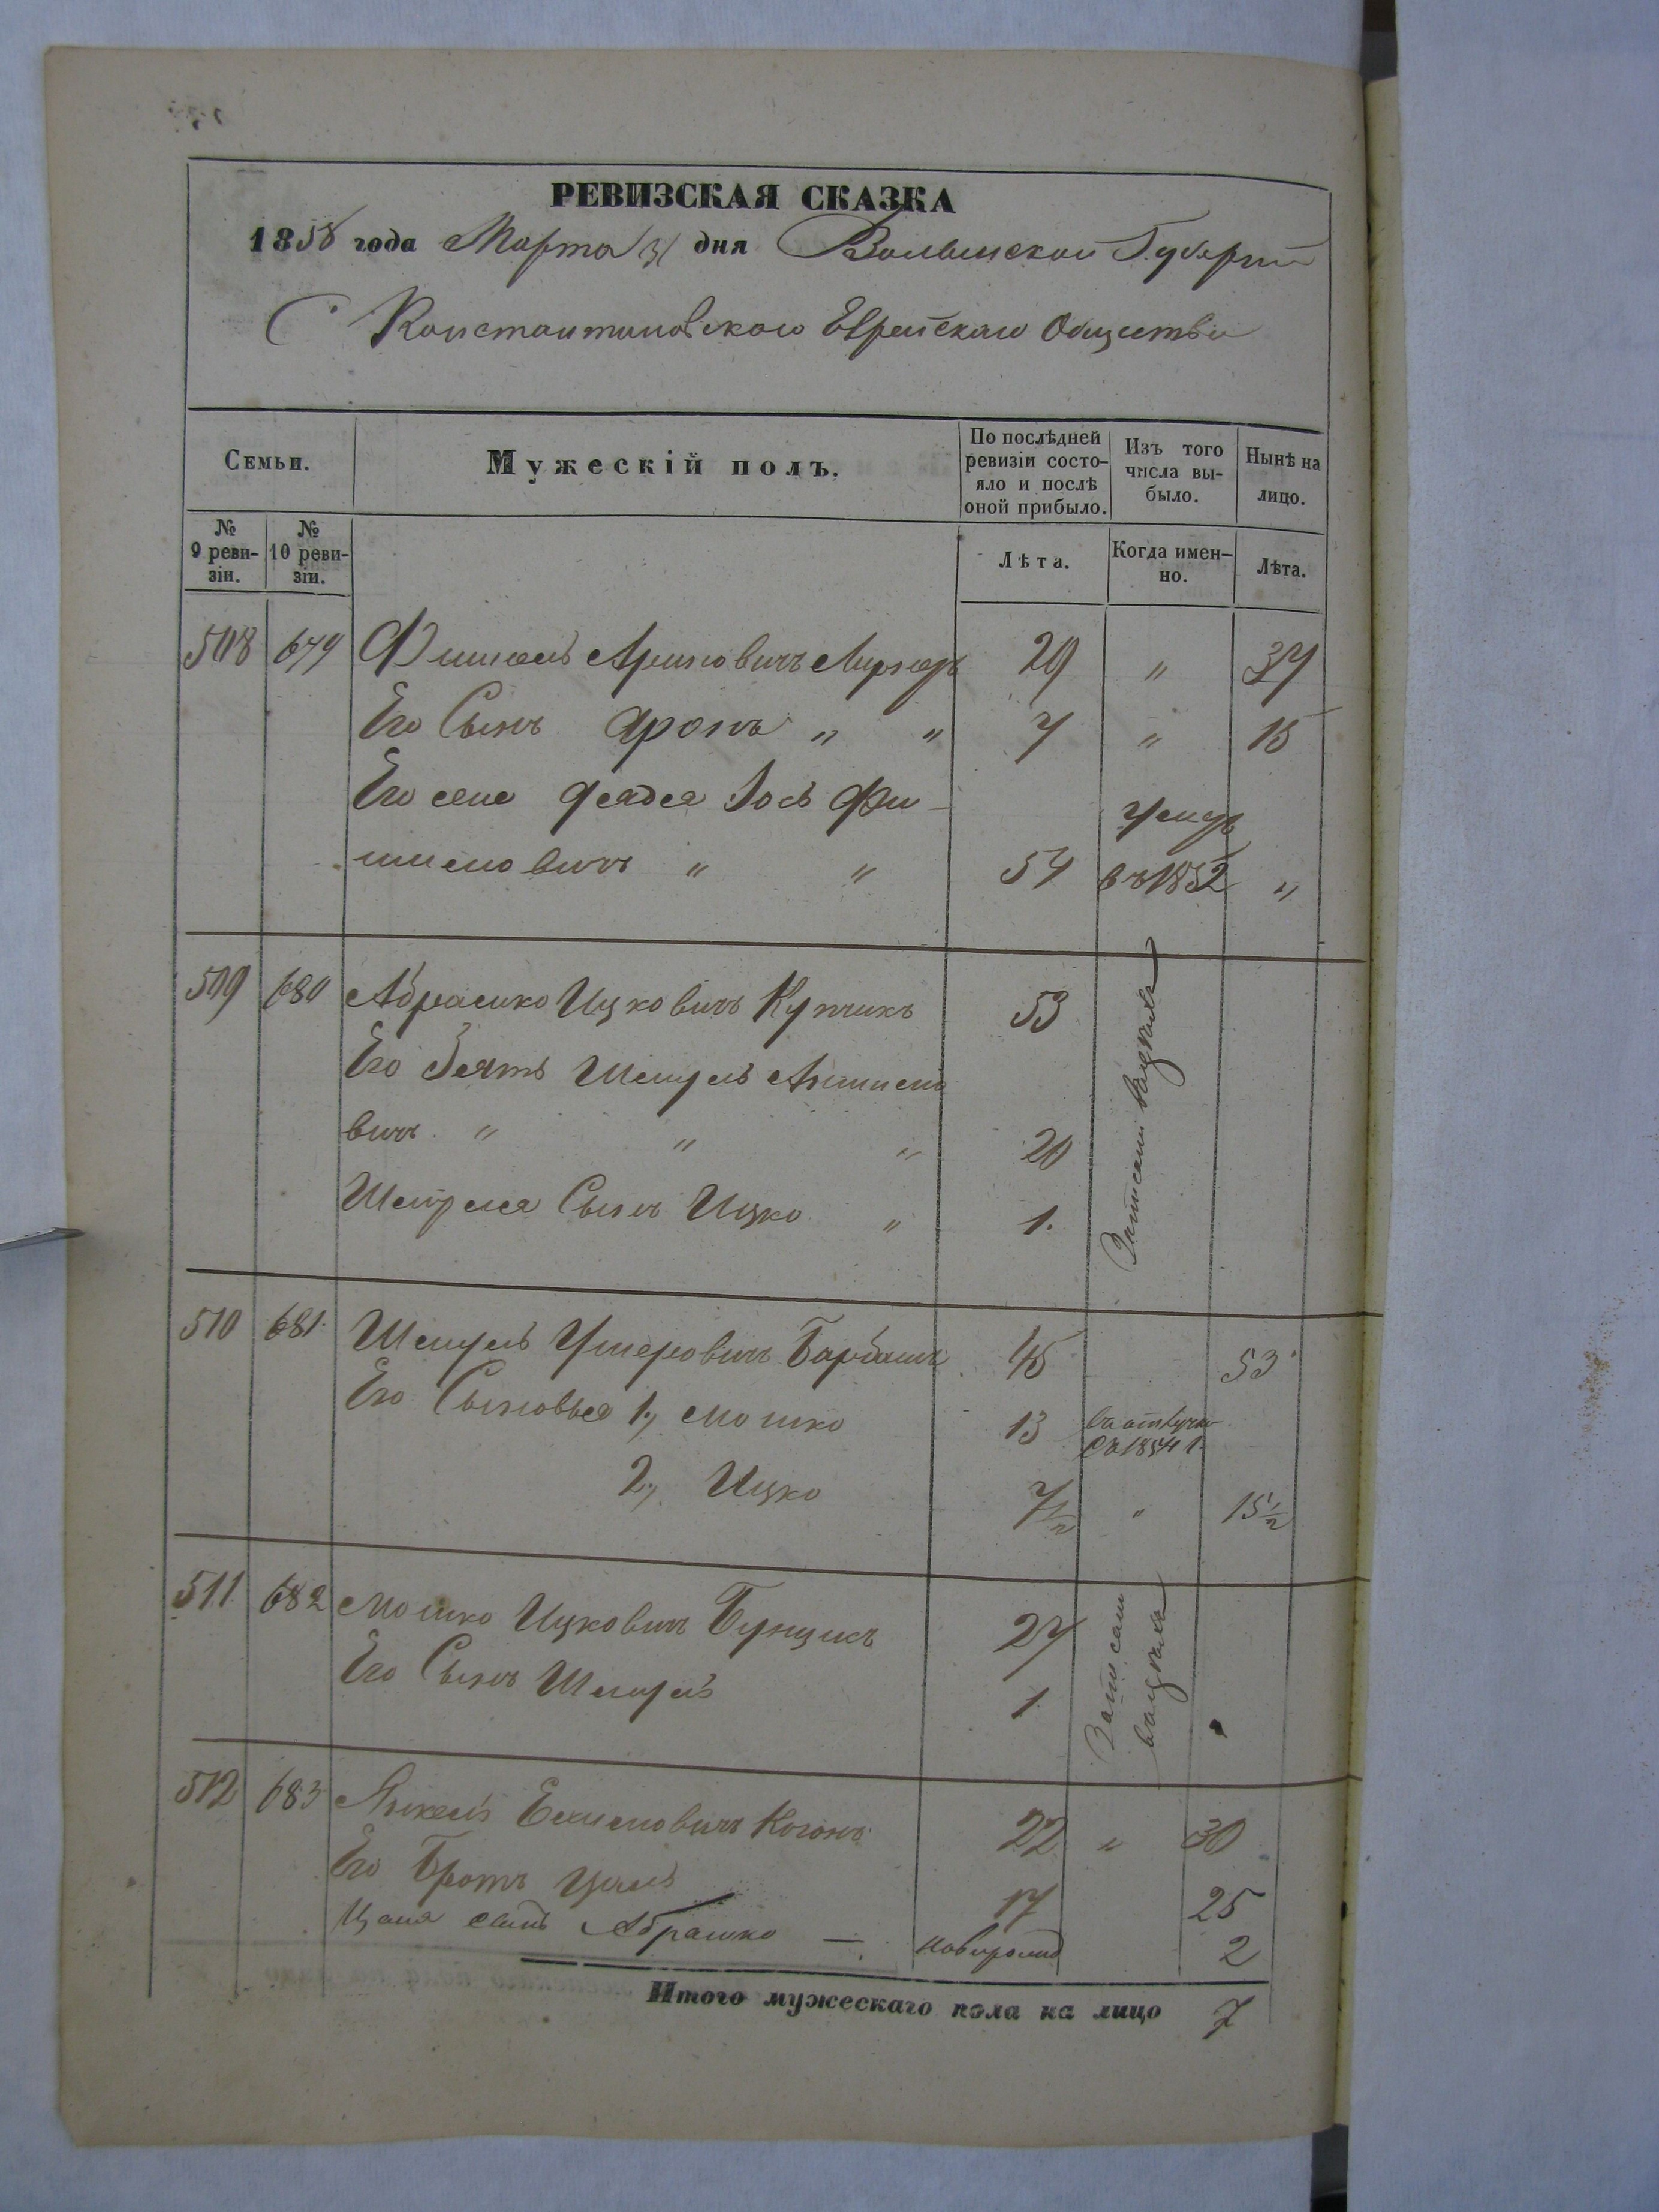 РЕВИЗСКАЯ СКАЗКА
1858 года Марта 31 дня Волынской Губернии
С Константиновского Еврейскаго Общества
Семьи.
Мужескій полъ.
По послѣдней ревизіи состо-
яло и послѣ
оной прибыло.
Изъ того
числа вы-
было.
Нынѣ на
лицо.
№
9 реви-
зіи.
№
10 реви-
зіи.
Лѣта.
Когда имен-
но.
Лѣта.
508 679 Фишель Ароновичъ 29 " 37
Его Сынъ Аронъ " " 7 " 15
Его дядя Іось Фи- умеръ
шиловичъ " " 54 въ 1852 "
509 680 Абрамко Ицковичъ Купчикъ 53
Его Зять Шмуль
вичъ " " " 20
Шмуля Сынъ Ицко " 1.
Записанъ
510 681 Шмуль Ушеровичъ Барбашъ 45 53
Его Сыновья 1, Мошко 13 въ отлучке
съ 1854 г.
2, Ицко 7 1/2 " 15 1/2
511 682 Мошко Ицковичъ 27
Его Сынъ Шмуль 1
Записан
512 683 Янкель Коганъ 22 " 30
Его Братъ Цаль 17 25
Цаля сынъ Абрамко — новорожд 2
Итого мужескаго пола на лицо 7